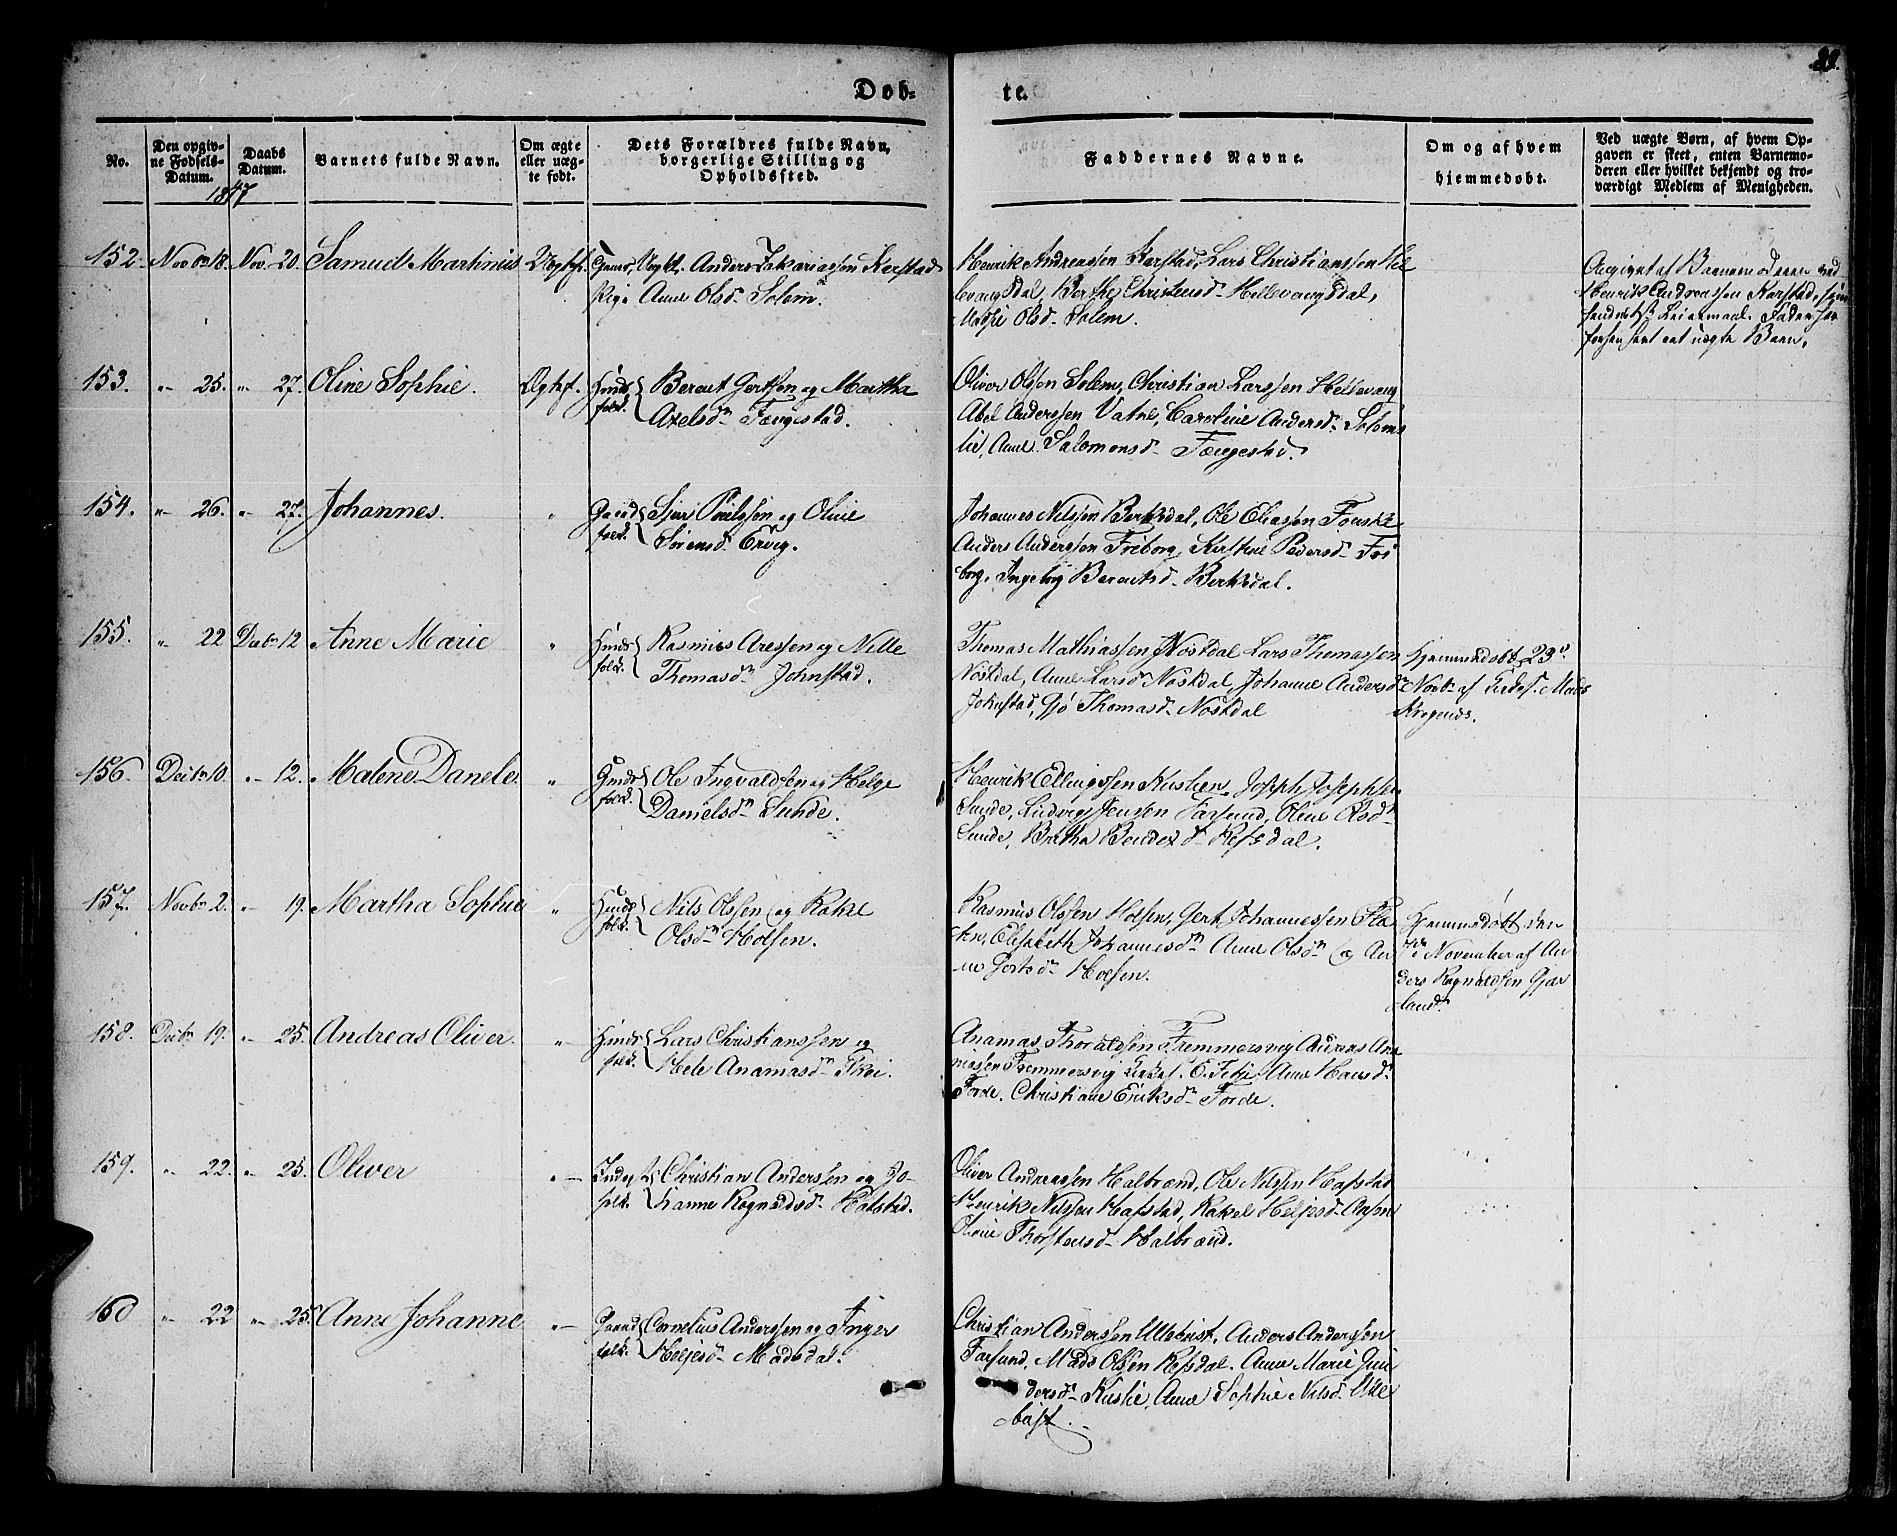 Døb-
te.
No.
Den opgiv-
ne Fødsels-
Datum.
Daabs
Datum.
1847
Barnets fulde Navn.
Om ægte
eller uæg-
te født.
Dets Forældres fulde Navn,
borgerlige Stilling og
Opholdssted.
Faddernes Navne.
Om og af hvem
hjemmedøbt.
Ved uægte Børn, af hvem Op-
gaven er skeet, enten Barnemo-
deren eller hvilket bekjendt og tro-
værdigt Medlem af Menigheden.
152. Novbr 18. Nov. 20. Samuel Martinus Uægtef. Anders Zakariassen Karstad
Pige Anne Olsdr Solem.
Henrik Andreassen Karstad, Lars Christianssen Hel
levangsdal, Berthe Christensd. Hellevangsdal,
Olsd. Solem.
Angivet af Barnemoderen ved
Henrik Andreassen Karstad,
Leiermaal. Faderen
forhen havt eet uægte Barn.
153. " 25. " 27. Oline Sophie. Ægtef. Huus
folk. Berent Gertsen og Martha
Axelsdr Fængestad.
Oliver Olsson Solem, Christian Larssen Hellevang
Abel Anderssen Vatne, Caroline Andersd. Solems
lie, Anne Salomonsd. Fængestad.
154. " 26. " 27. Johannes. " Gaard
folk. og Oline
Sørensd. Ervig.
Johannes Nilssen Berksdal, Ole Eliassen
Anders Anderssen Friborg, Kirstine Pedersd. Fri
borg, Ingeborg Berentsd. Berksdal.
155. " 22 Decbr 12 Anne Marie " Huus
folk. Rasmus Aressen og Nille
Thomasdr Johnstad.
Thomas Mathiassen Nøstdal Lars Thomassen
Nøstdal, Anne Larsd. Nøstdal, Johanne Andersdr
Johnstad, Gjø Thomasd. Nøstdal
Hjemmedøbt 23d
Novbr af Mads
156. Decbr 10. " 12. Malene Danele " Huus
folk. Ole Ingvaldsen og Helge
Danielsdr Sunde.
Henrik Ellingssen Joseph Josephsen
Sunde, Ludvig Jensen Farsund, Oline Olsdr
Sunde, Brétha Bendixdr Refsdal.
157. Novbr 2. " 19. Martha Sophie " Huus
folk. Nils Olssen og Rakel
Olsdr Holsen.
Rasmus Olssen Holsen, Gert Johannessen Fla
ten, Elisabeth Johannesdr Anne Olsdr og An
ne Gertsdr Holsen.
Hjemmedøbt den
November af An
ders Ragnaldsen Gjær
land.
158. Decbr 19. " 25. Andreas Oliver. " Huus
folk. Lars Christianssen og
Hele Ananiasdr Skei.
Ananias Thoraldsen Fremmersvig Andreas Ana
niasen Fremmersvig Anne Hansd.
Førde. Christiane Eriksdr Førde.
159. " 22. " 25. Oliver " Inderst
folk. Christian Anderssen og Jo-
hanne Ragnaldsd. Hafstad.
Oliver Andreassen Halbrend, Ole Nilssen Hafstad
Henrik Nilssen Hafstad, Rakel Heljesd. Aasen
Oline Thorstensd. Halbrend.
160 " 22 " 25. Anne Johanne " Gaard
folk. Cornelius Anderssen og Inger
Heljesd. Mælsdal.
Christian Anderssen Anders Anderssen
Farsund, Mads Olssen Refsdal. Anne Marie Gun
dersdr Anne Sophie Nilsd.